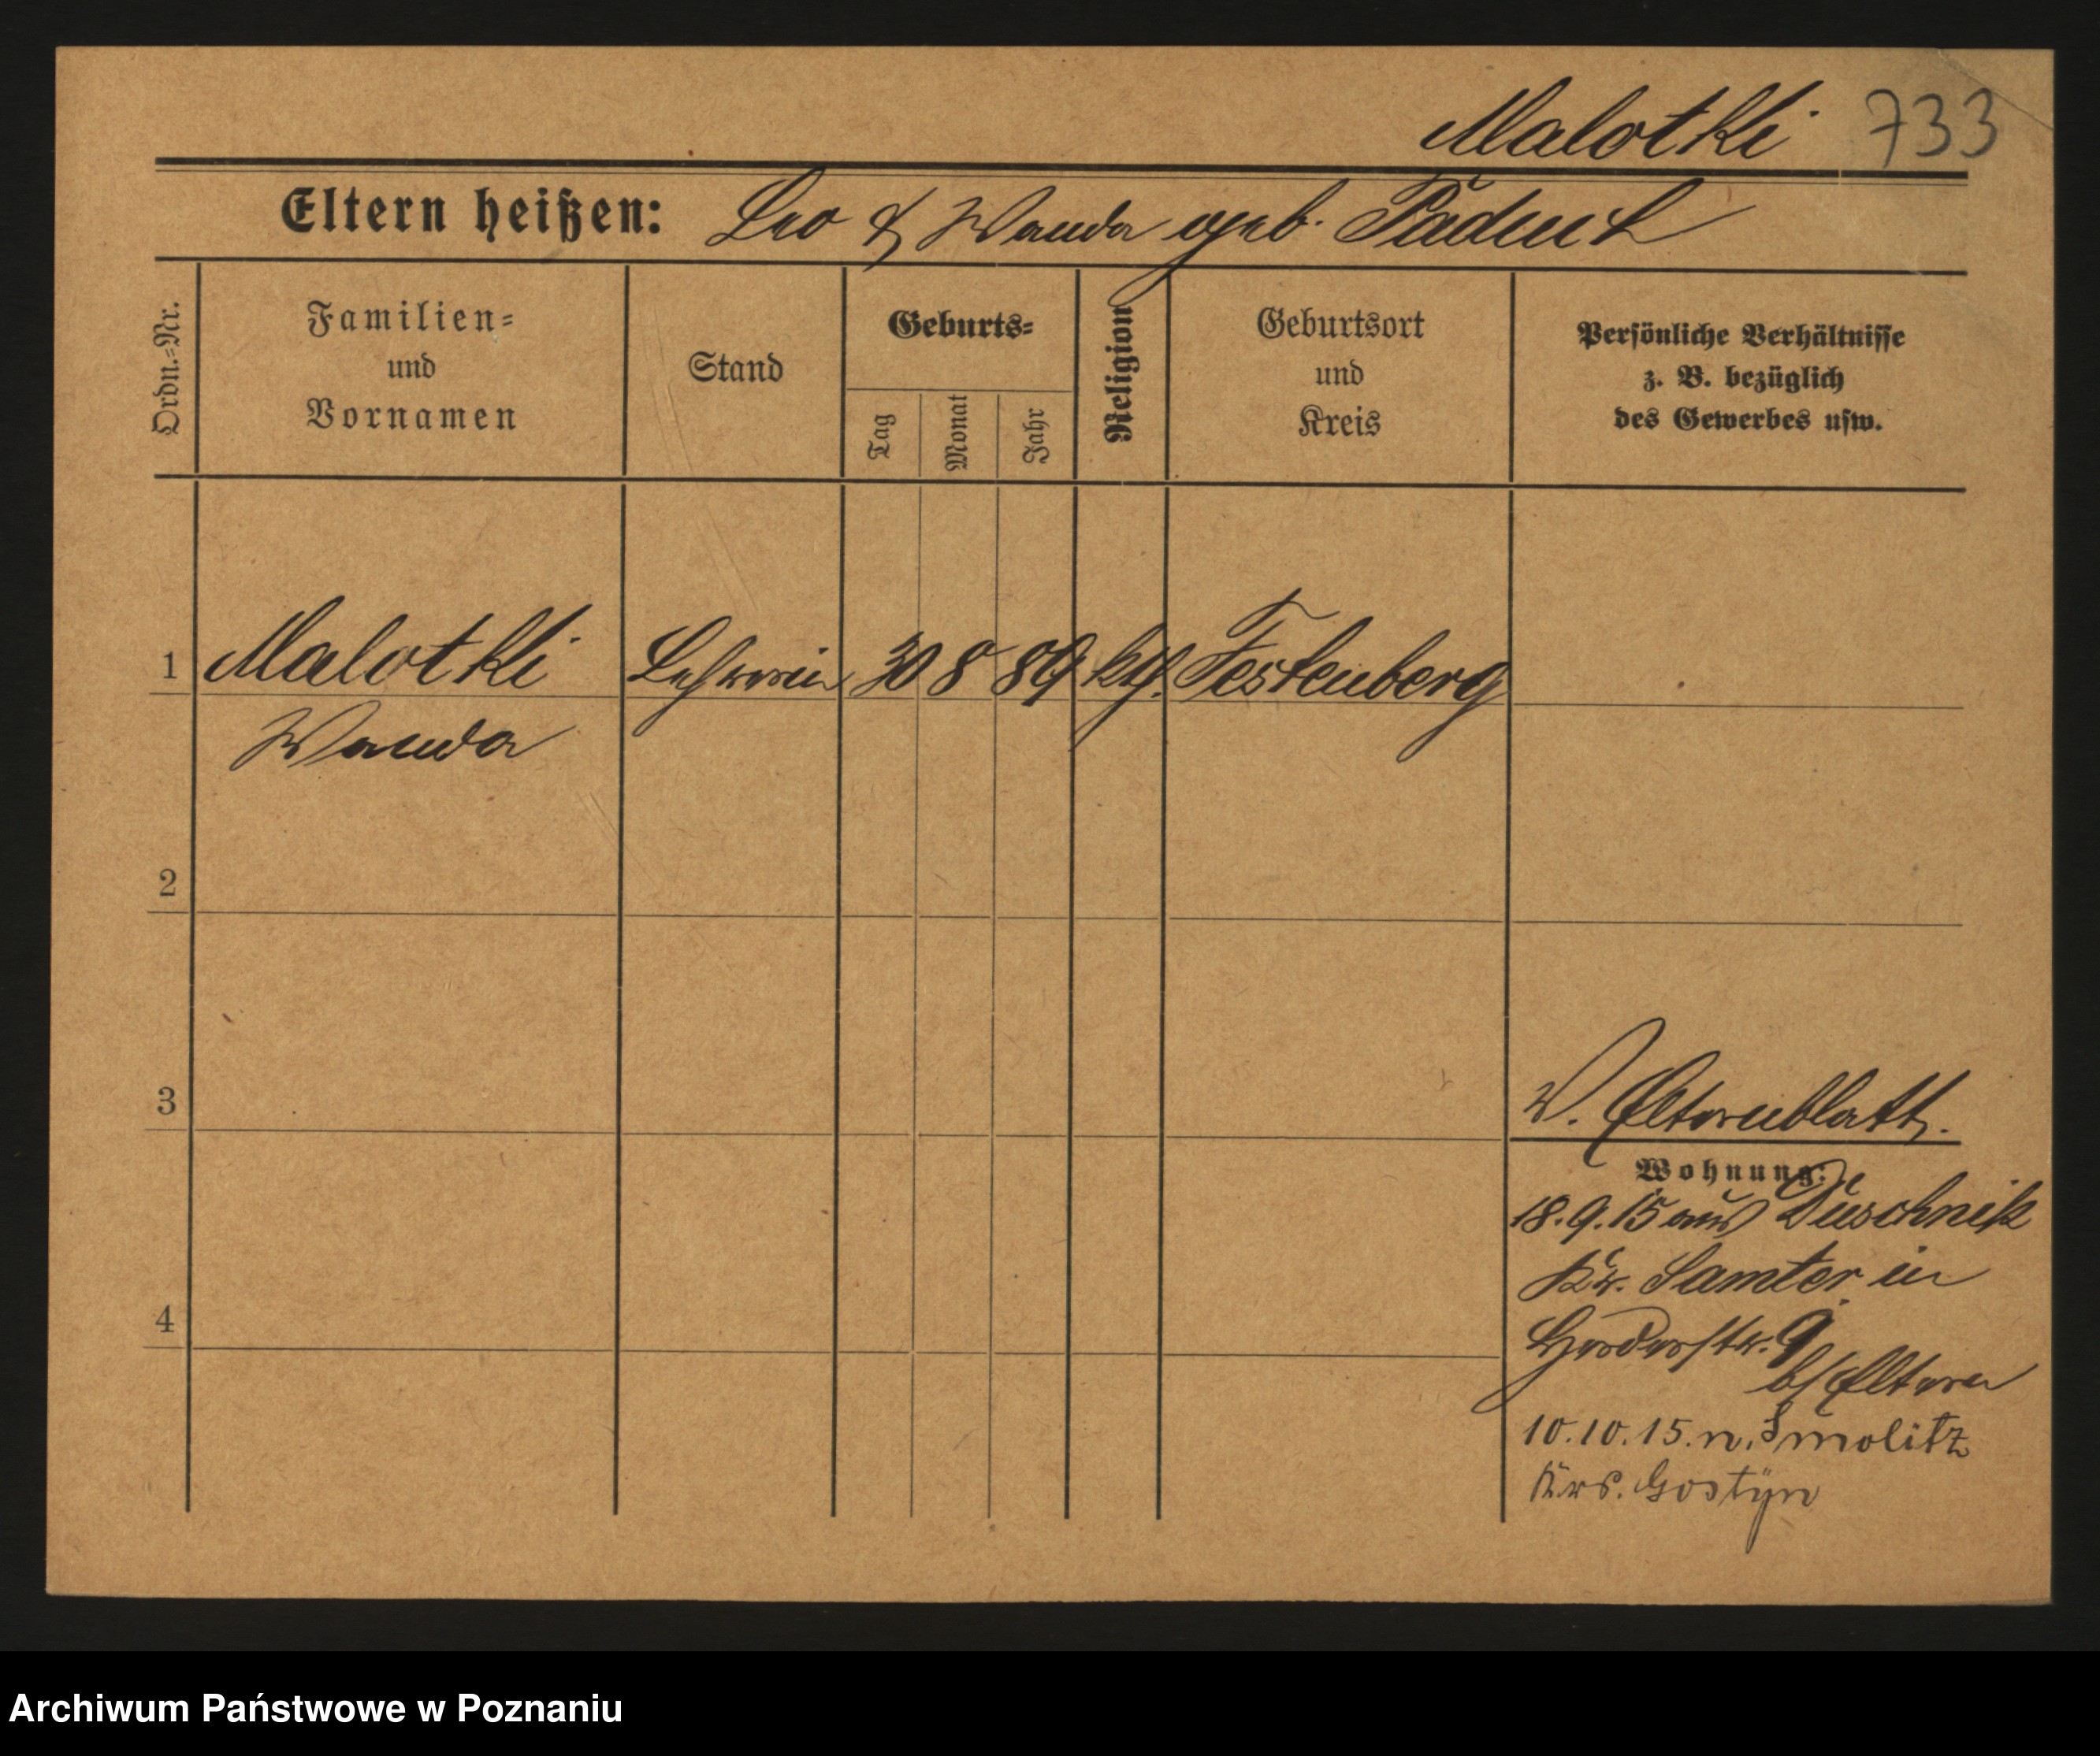 Malotki 733
Eltern heißen: Leo & Wanda geb.
Ordn.-Nr.
Familien-
und
Vornamen
Stand
Geburts-
Tag
Monat
Jahr
Religion
Geburtsort
und
Kreis
Persönliche Verhältnisse
z. B. bezüglich
des Gewerbes usw.
1 Malotki Lehrerin 30 8 89 kth. Festenberg
Wanda
2
3
V. Elternblatt.
Wohnung:
18.9.15 aus Duschnik
Kr. Samter in
4
Herderstr. 9
b/ Eltern
10.10.15. n. Smolitz
Krs. Gostyn
Archiwum Państwowe w Poznaniu